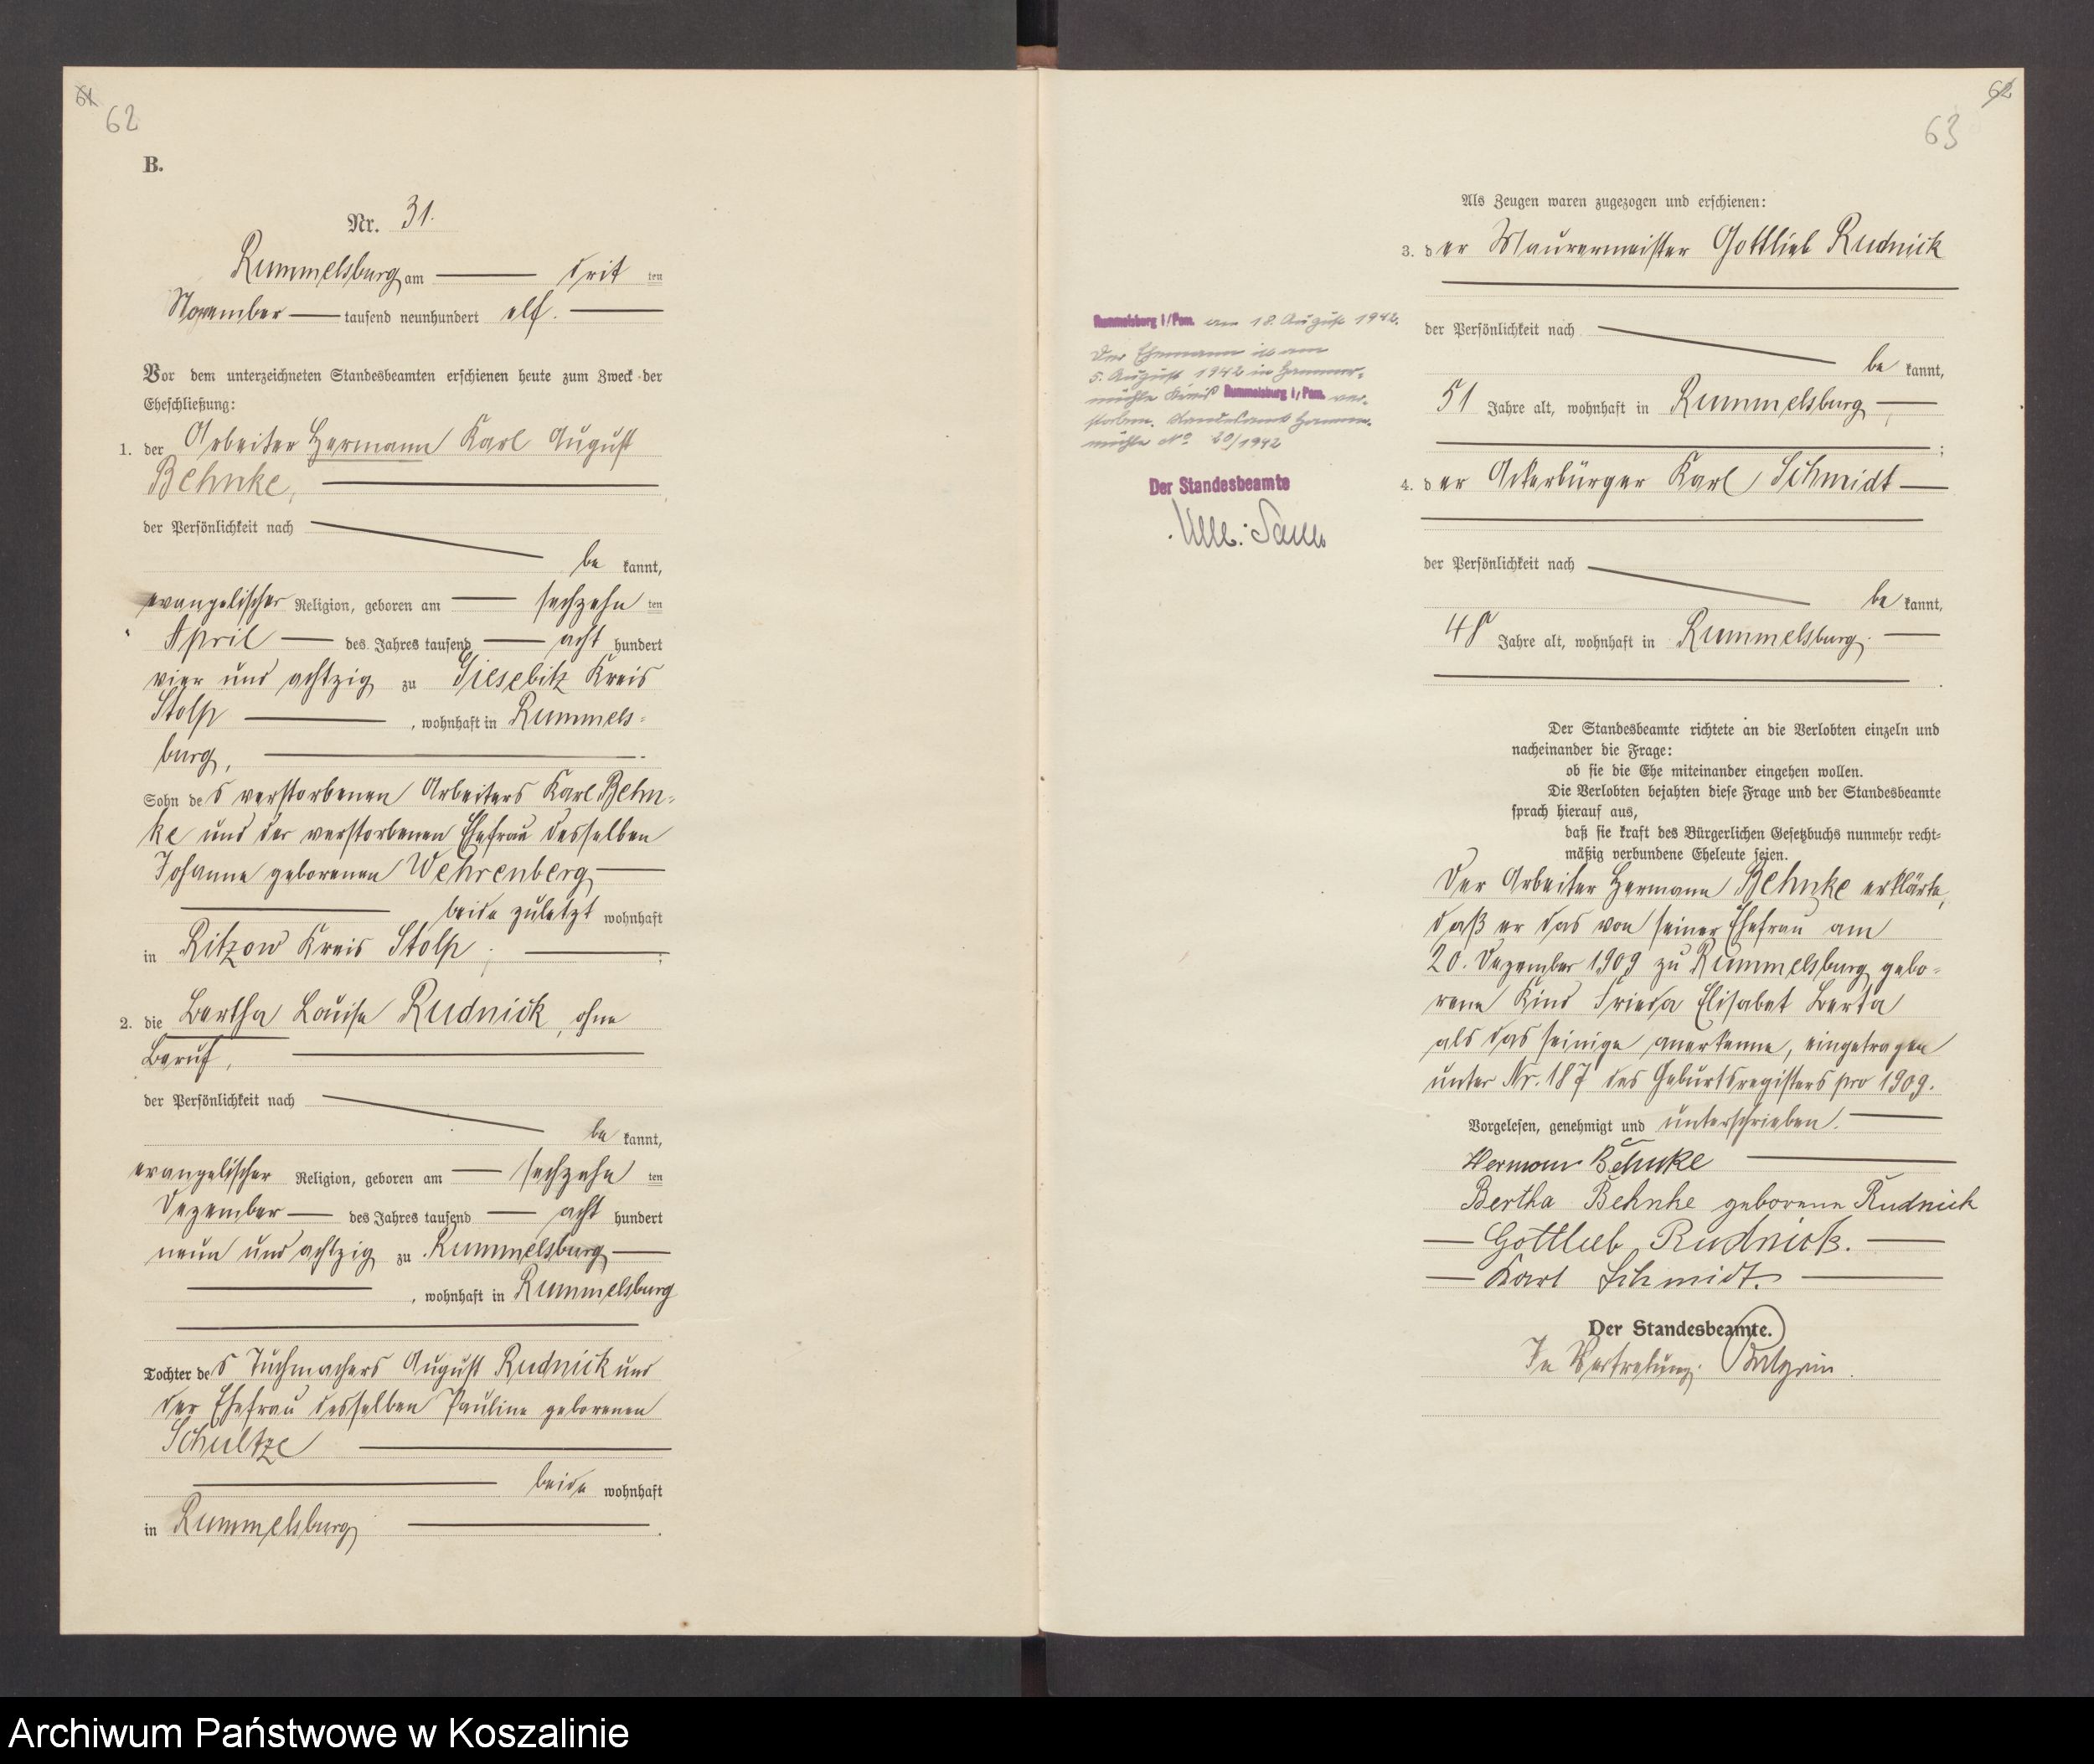 61
62
B.
Nr. 31.
Rummelsburg am drit ten
November tausend neunhundert elf.
Vor dem unterzeichneten Standesbeamten erschienen heute zum Zweck der
Eheschließung:
1. der Arbeiter Hermann Karl August
Behnke,
der Persönlichkeit nach
be kannt,
evangelischer Religion, geboren am sechzehn ten
April des Jahres tausend acht hundert
vier und achtzig zu Giesebitz Kreis
Stolp , wohnhaft in Rummels-
burg,
Sohn des verstorbenen Arbeiters Karl Behn-
ke und der verstorbenen Ehefrau desselben
Johanne geborenen Wehrenberg
beide zuletzt wohnhaft
in Ritzow Kreis Stolp ;
2. die Bertha Louise Rudnick, ohne
Beruf,
der Persönlichkeit nach
be kannt,
evangelischer Religion, geboren am sechzehn ten
Dezember des Jahres tausend acht hundert
neun und achtzig zu Rummelsburg
, wohnhaft in Rummelsburg
Tochter des Tuchmachers August Rudnick und
der Ehefrau desselben Pauline geborenen
Schultze
beide wohnhaft
in Rummelsburg .
62
63
Als Zeugen waren zugezogen und erschienen:
3. der Maurermeister Gottlieb Rudnick
der Persönlichkeit nach
be kannt,
51 Jahre alt, wohnhaft in Rummelsburg ;
4. der Ackerbürger Karl Schmidt
der Persönlichkeit nach
be kannt,
48 Jahre alt, wohnhaft in Rummelsburg.
Der Standesbeamte richtete an die Verlobten einzeln und
nacheinander die Frage:
ob sie die Ehe miteinander eingehen wollen.
Die Verlobten bejahten diese Frage und der Standesbeamte
sprach hierauf aus,
daß sie kraft des Bürgerlichen Gesetzbuchs nunmehr recht-
mäßig verbundene Eheleute seien.
Der Arbeiter Hermann Behnke erklärte,
daß er das von seiner Ehefrau am
20. Dezember 1909 zu Rummelsburg gebo-
rene Kind Frieda Elisabet Berta
als das seinige anerkenne, eingetragen
unter Nr. 187 des Geburtsregisters pro 1909.
Vorgelesen, genehmigt und unterschrieben.
Hermann Behnke
Bertha Behnke geborene Rudnick
Gottlieb Rudnick.
Karl Schmidt.
Der Standesbeamte.
In Vertretung:
Rummelsburg i/Pom. am 18. August 1942.
Der Ehemann ist am
5. August 1942 in Hammer-
mühle Kreis Rummelsburg i/Pom. ver-
storben. Standesamt Hammer-
mühle No 20/1942
Der Standesbeamte
Archiwum Państwowe w Koszalinie